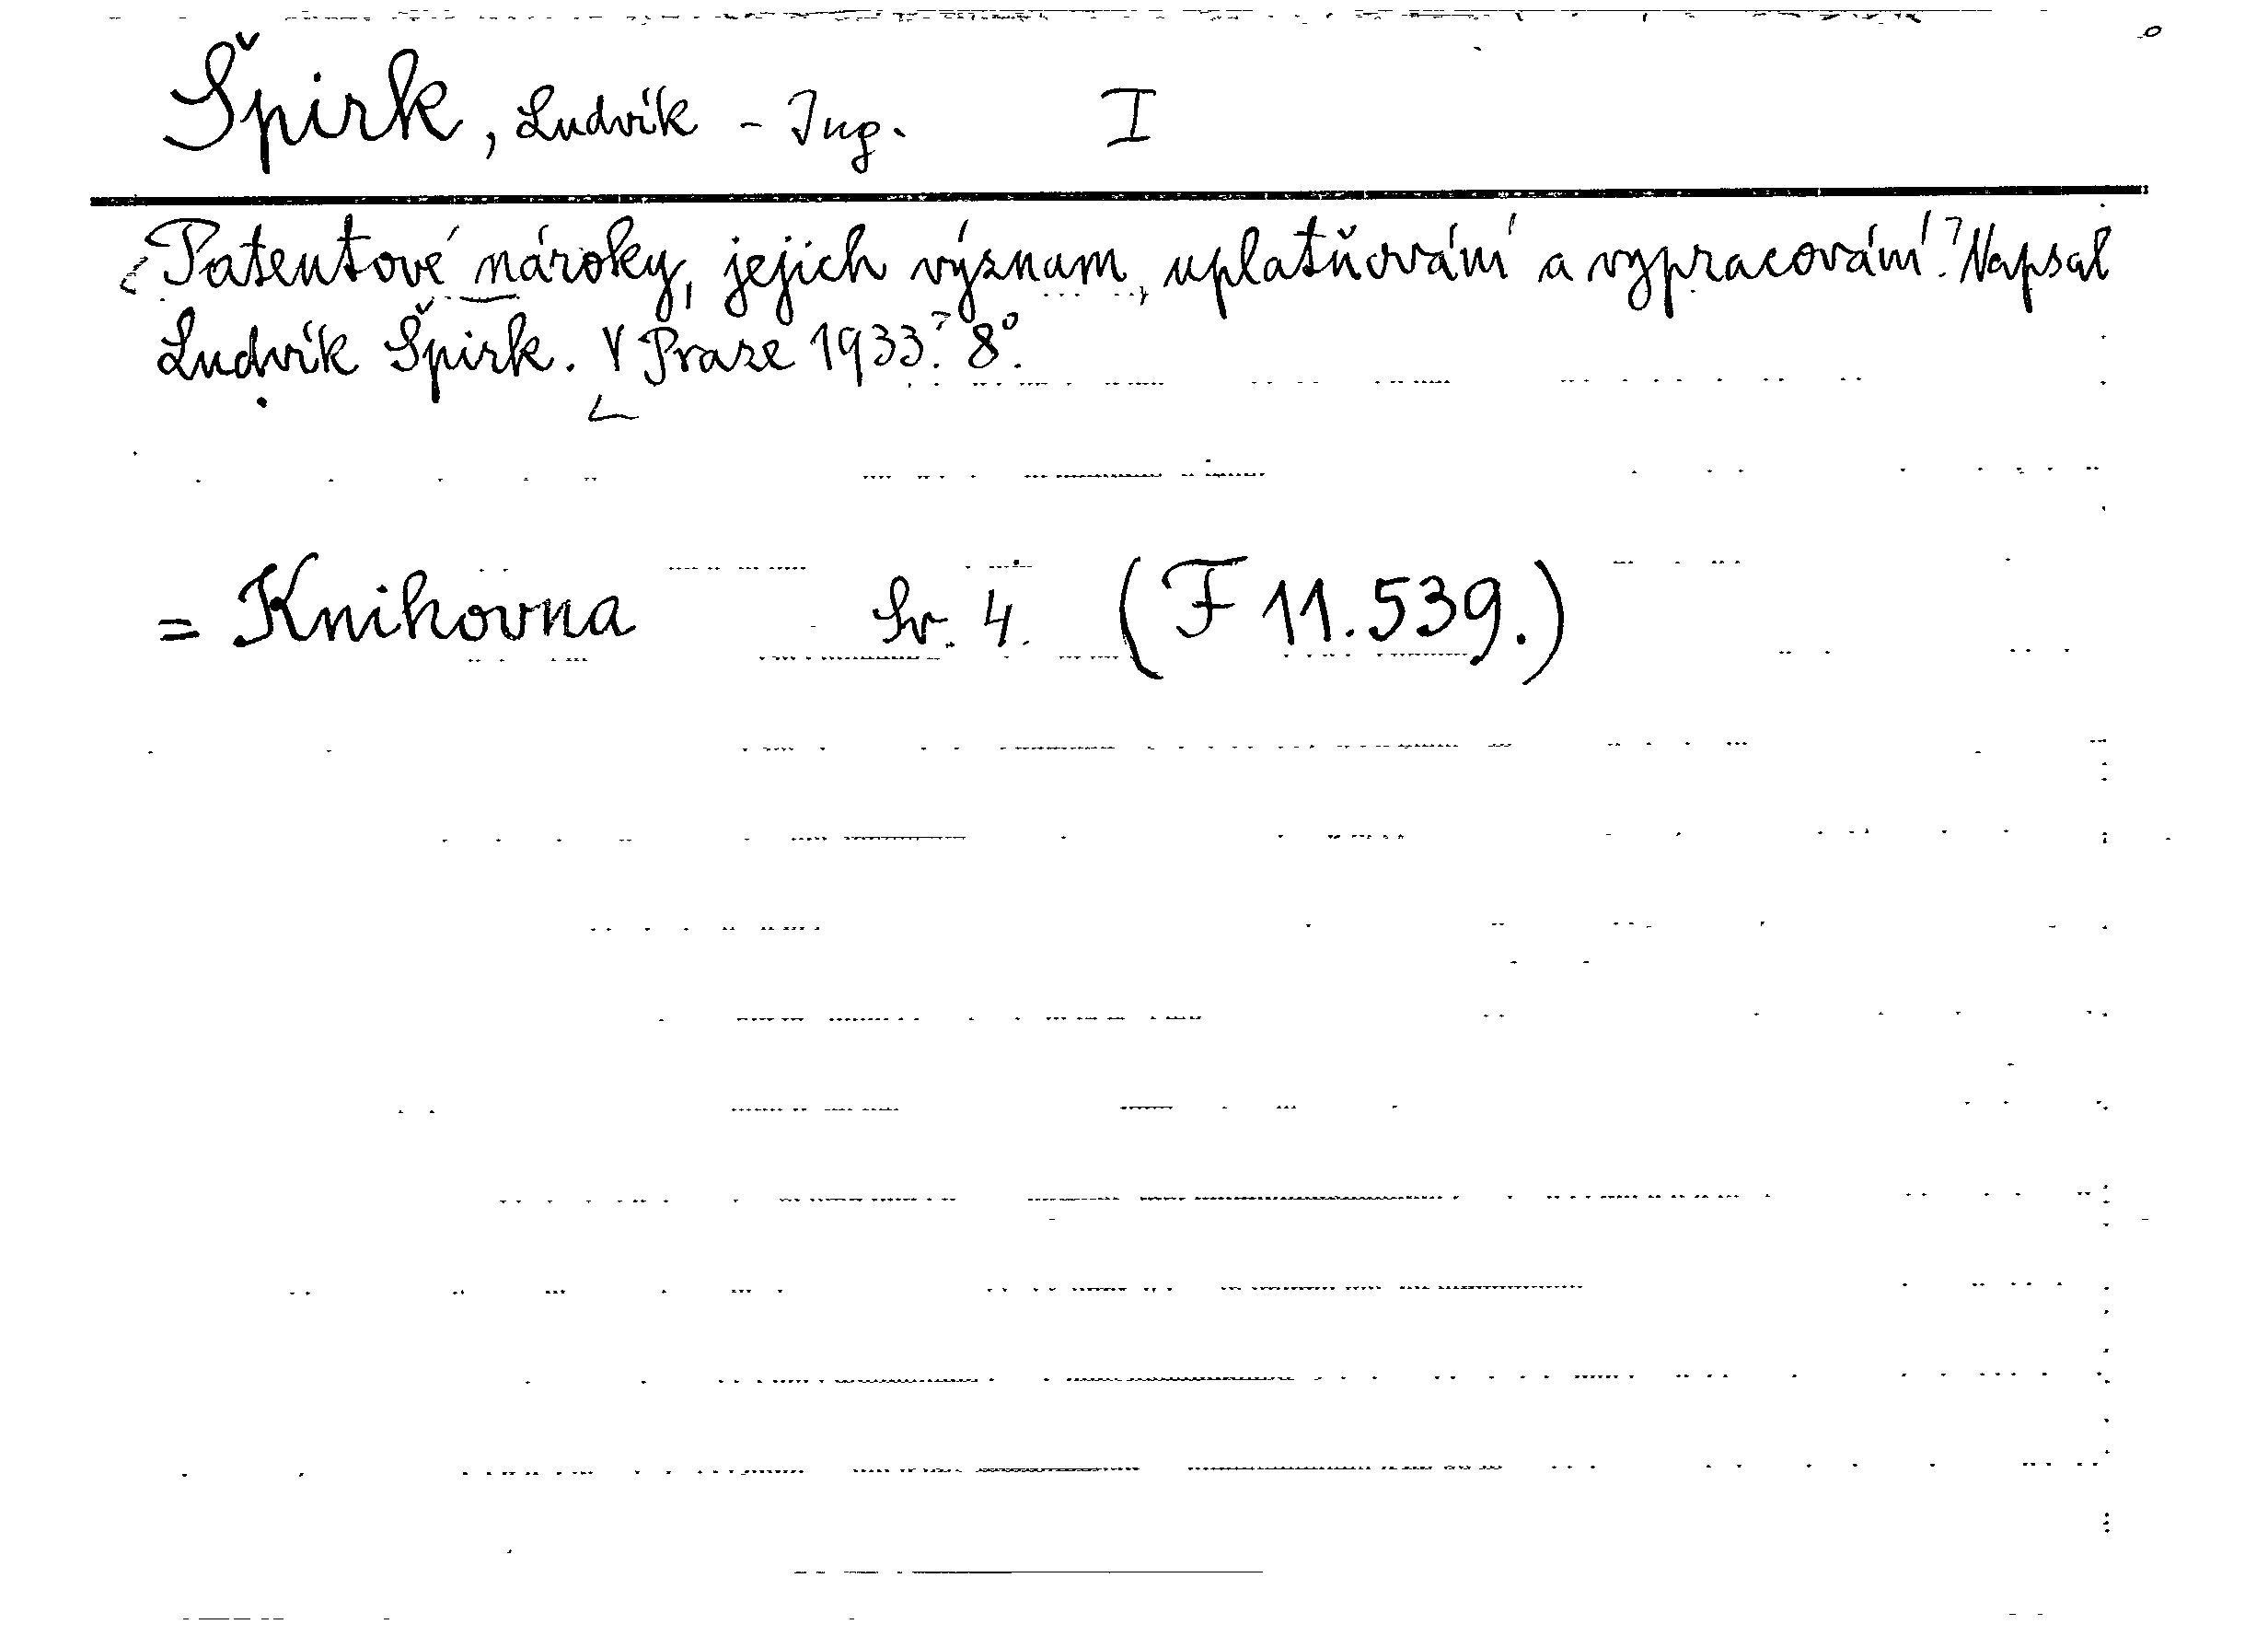 Špirk, Ludvík - Ing. I
Patentové nároky, jejich význam, uplatňování a vypracování. Napsal
Ludvík Špirk. V Praze 1933. 8°.
= Knihovna Sv. 4. (F 11.539.)